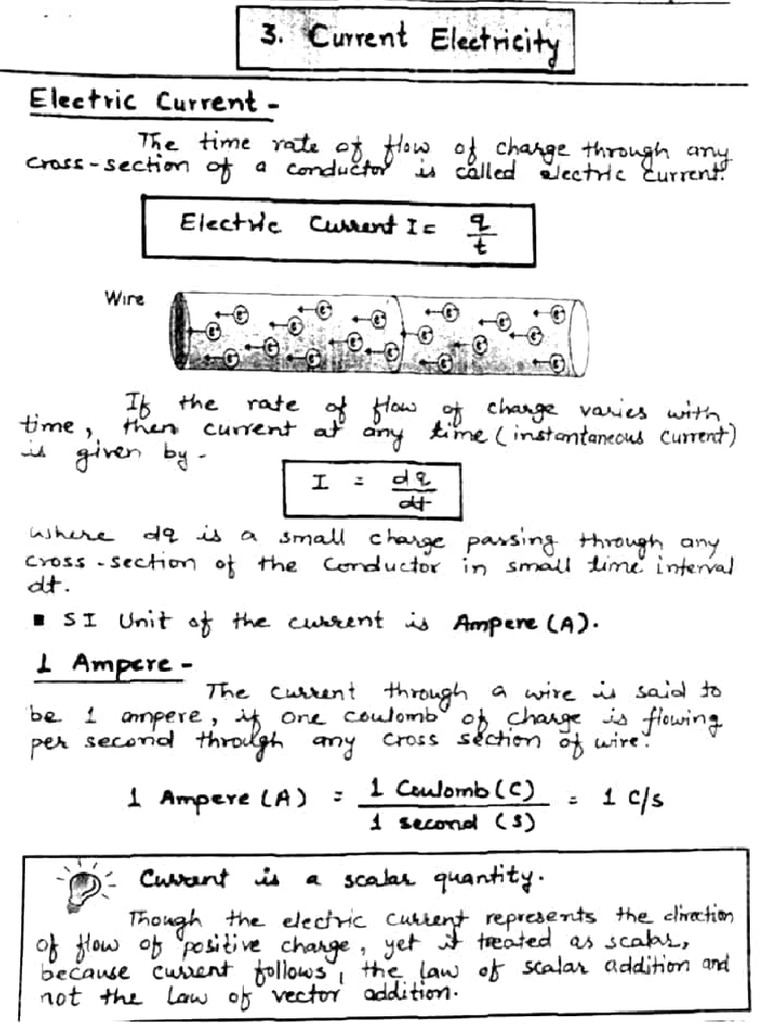 3. Current Electricity
Electric Current -
The time rate of flow of charge through any
cross-section of a conductor is called electric current.
Electric Current I = q/t
Wire
e⁻ e⁻ e⁻ e⁻ e⁻ e⁻ e⁻ e⁻ e⁻ e⁻ e⁻ e⁻ e⁻ e⁻ e⁻ e⁻ e⁻
If the rate of flow of charge varies with
time, then current at any time (instantaneous current)
is given by -
I = dq/dt
where dq is a small charge passing through any
cross-section of the conductor in small time interval
dt.
▪ SI Unit of the current is Ampere (A).
1 Ampere -
The current through a wire is said to
be 1 ampere, if one coulomb of charge is flowing
per second through any cross section of wire.
1 Ampere (A) = 1 Coulomb (C) / 1 second (S) = 1 C/s
Current is a scalar quantity.
Though the electric current represents the direction
of flow of positive charge, yet it treated as scalar,
because current follows, the law of scalar addition and
not the law of vector addition.